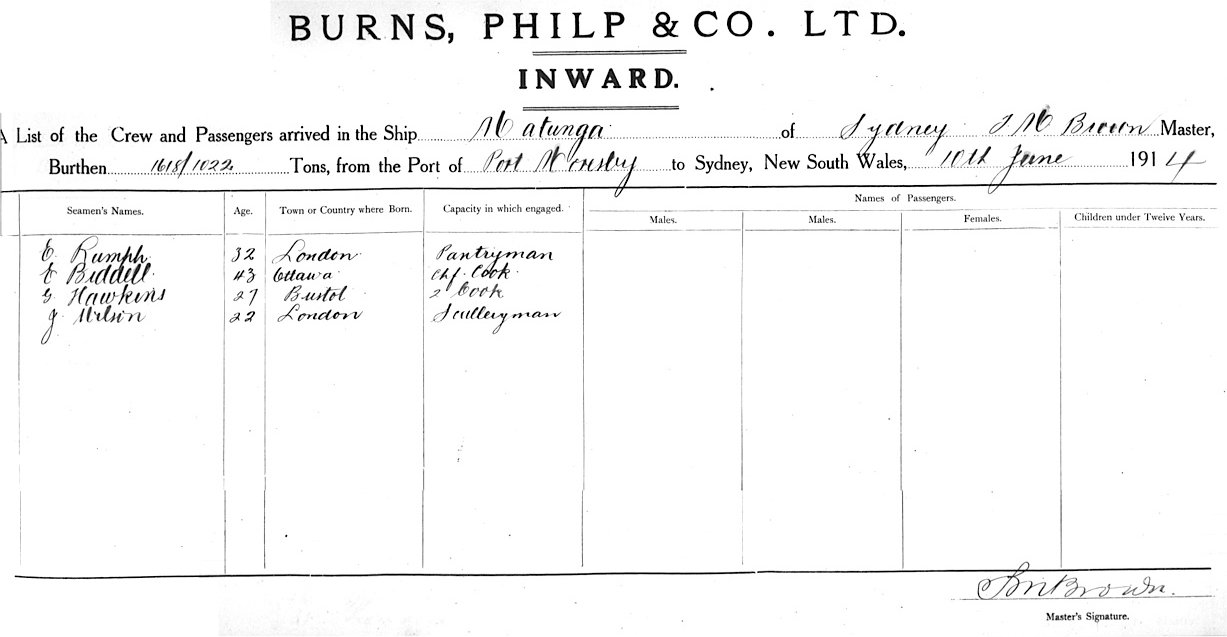 BURNS, PHILP & CO. LTD.
INWARD.
A List of the Crew and Passengers arrived in the Ship Matunga of Sydney J M Brown Master,
Burthen 1618/1022 Tons, from the Port of Port Moresby to Sydney, New South Wales, 10th June 1914
Seamen's Names. Age. Town or Country where Born. Capacity in which engaged. Names of Passengers.
Males. Males. Females. Children under Twelve Years.
E Rumph 32 London Pantryman
E Biddell 43 Ottawa Chf. Cook
G Hawkins 27 Bristol 2 Cook
J Wilson 22 London Sculleryman
Brown.
Master's Signature.